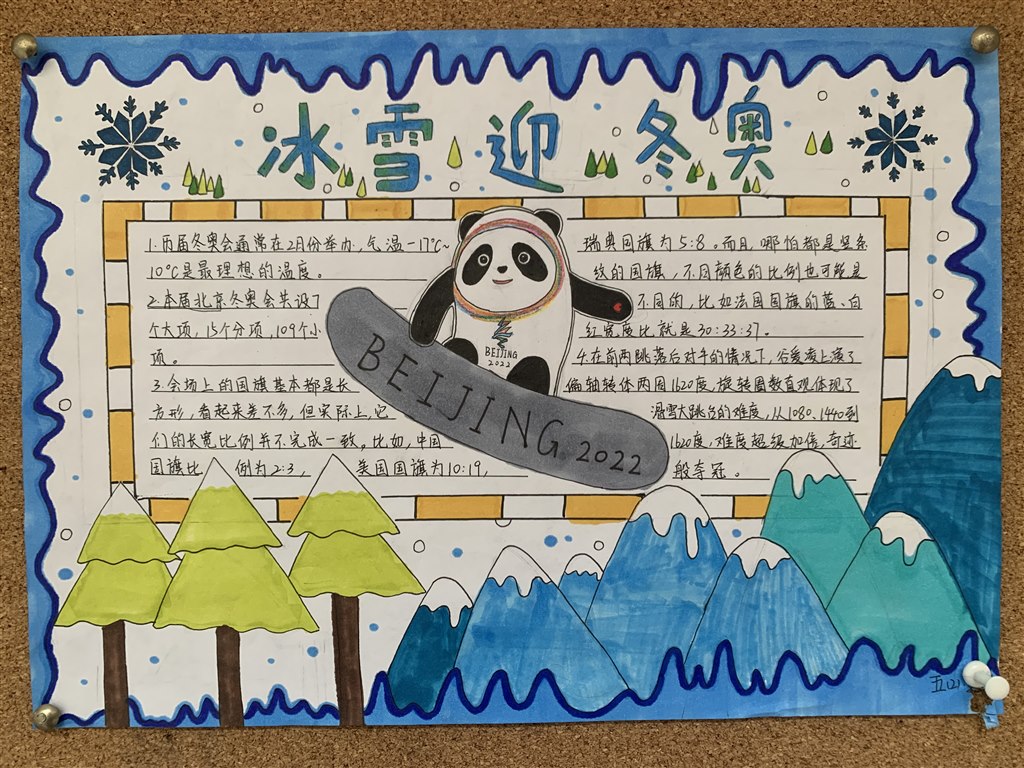 冰雪迎冬奥
1.历届冬奥会通常在2月份举办,气温-17℃~
10℃是最理想的温度。
2.本届北京冬奥会共设7
个大项,15个分项,109个小
项。
3.会场上的国旗基本都是长
方形,看起来差不多,但实际上,它
们的长宽比例并不完成一致,比如,中国
国旗比例为2:3,美国国旗为10:19,
瑞典国旗为5:8。而且,哪怕都是竖条
纹的国旗,不同颜色的比例也可能是
不同的,比如法国国旗的蓝、白
红宽度比就是30:33:37。
4.在前两跳落后对手的情况下,谷爱凌上演了
偏轴转体两周1620度,旋转圈数直观体现了
滑雪大跳台的难度,从1080、1440到
1620度,难度超级加倍,奇迹
般夺冠。
BEIJING
2022
BEIJING 2022